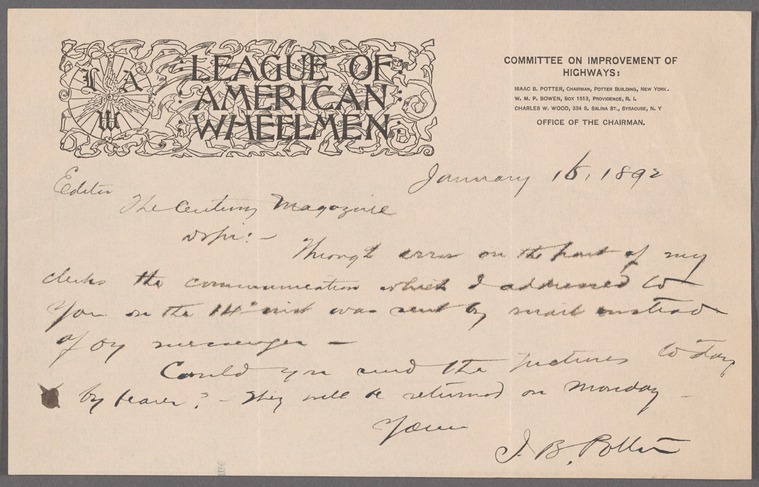 L A W
LEAGUE OF
AMERICAN
WHEELMEN.
COMMITTEE ON IMPROVEMENT OF
HIGHWAYS:
ISAAC B. POTTER, CHAIRMAN, POTTER BUILDING, NEW YORK.
W. M. P. BOWEN, BOX 1513, PROVIDENCE, R. I.
CHARLES W. WOOD, 334 S. SALINA ST., SYRACUSE, N. Y
OFFICE OF THE CHAIRMAN.
January 16, 1892
Editor
The Century Magazine
Through error on the part of my
clerks the communication which I addressed to
you on the 14" inst was sent by mail instead
of by messenger —
Could you send the pictures to day
by bearer? — They will be returned on Monday —
Yours
I. B. Potter